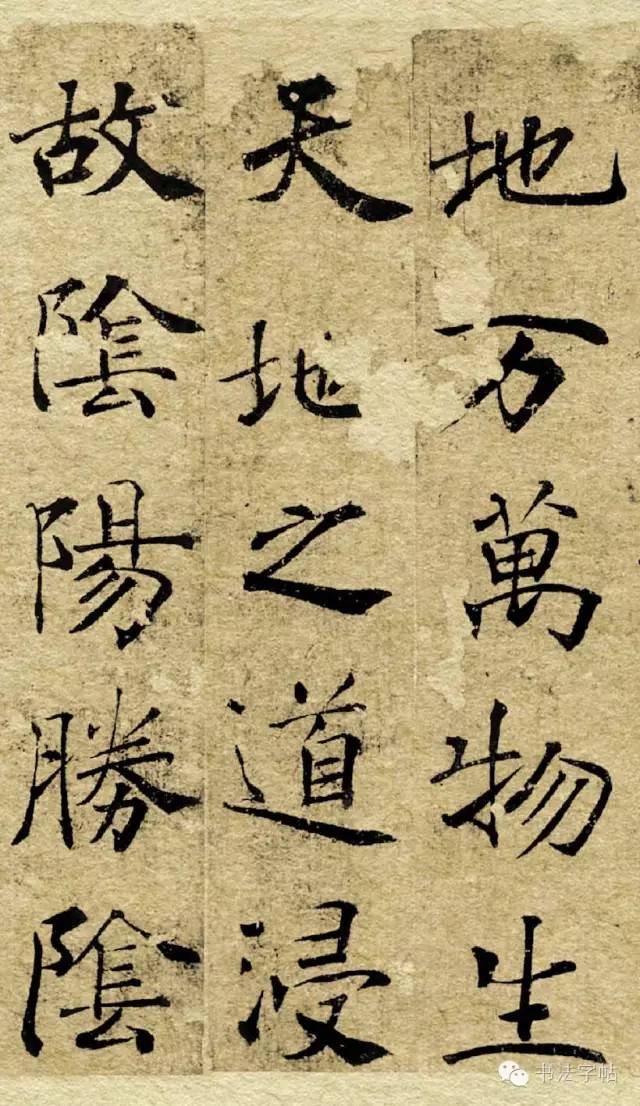 地万萬物生
天地之道浸
故陰陽勝陰
书法字帖